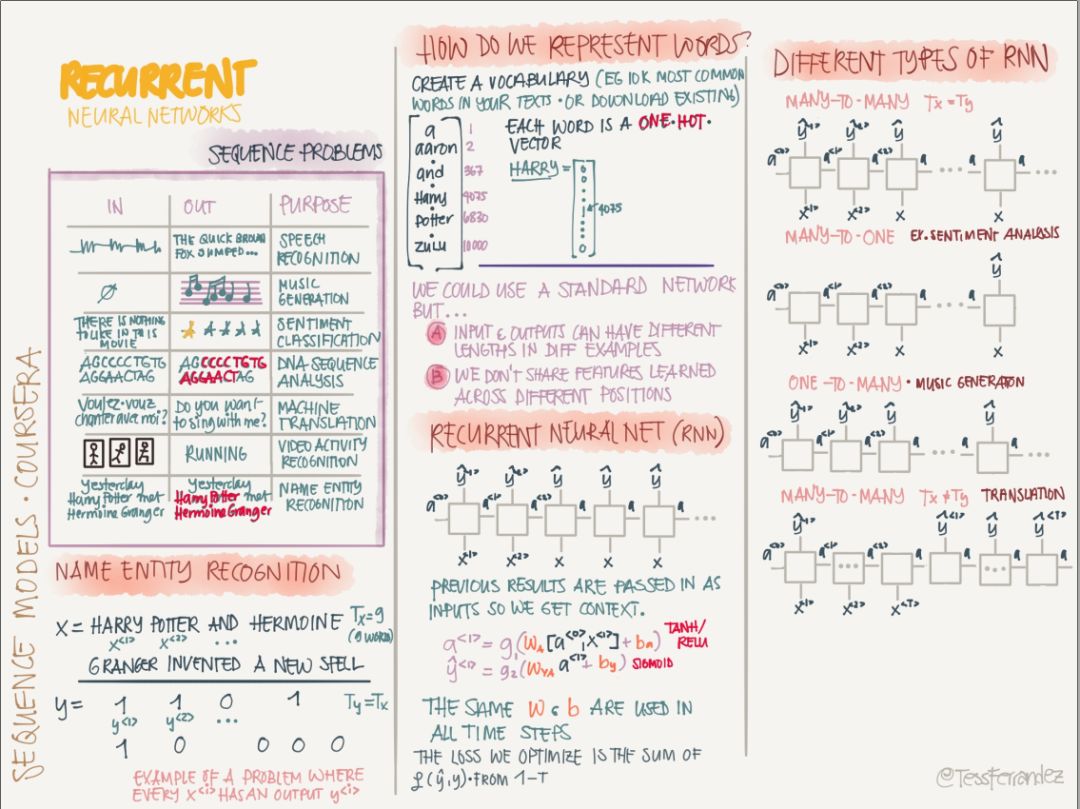 RECURRENT
NEURAL NETWORKS
SEQUENCE PROBLEMS
IN OUT PURPOSE
THE QUICK BROWN
FOX JUMPED...
SPEECH
RECOGNITION
∅
MUSIC
GENERATION
THERE IS NOTHING
TO LIKE IN THIS
MOVIE
SENTIMENT
CLASSIFICATION
AGCCCCTGTG
AGGAACTAG
AGCCCCTGTG
AGGAACTAG
DNA SEQUENCE
ANALYSIS
Voulez-vouz
chanter avec moi?
Do you want
to sing with me?
MACHINE
TRANSLATION
RUNNING
VIDEO ACTIVITY
RECOGNITION
Yesterday
Harry Potter met
Hermoine Granger
Yesterday
Harry Potter met
Hermoine Granger
NAME ENTITY
RECOGNITION
NAME ENTITY RECOGNITION
X = HARRY POTTER AND HERMOINE Tx=9
x<1> x<2> ... (9 WORDS)
GRANGER INVENTED A NEW SPELL
y = 1 1 0 1 Ty=Tx
y<1> y<2> ...
1 0 0 0 0
EXAMPLE OF A PROBLEM WHERE
EVERY x<i> HAS AN OUTPUT y<i>
SEQUENCE MODELS · COURSERA
HOW DO WE REPRESENT WORDS?
CREATE A VOCABULARY (EG 10K MOST COMMON
WORDS IN YOUR TEXTS · OR DOWNLOAD EXISTING)
a 1
aaron 2
and 367
Harry 4075
Potter 6830
zulu 10000
EACH WORD IS A ONE·HOT·
VECTOR
HARRY =
0
0
1 4075
0
WE COULD USE A STANDARD NETWORK
BUT...
A INPUT & OUTPUTS CAN HAVE DIFFERENT
LENGTHS IN DIFF EXAMPLES
B WE DON'T SHARE FEATURES LEARNED
ACROSS DIFFERENT POSITIONS
RECURRENT NEURAL NET (RNN)
ŷ<1> ŷ<2> ŷ ŷ ŷ
a<0> a<1> a<2> a a a ...
x<1> x<2> x x x
PREVIOUS RESULTS ARE PASSED IN AS
INPUTS SO WE GET CONTEXT.
a<1> = g1(Wa[a<0>, x<1>] + ba) TANH/
RELU
ŷ<1> = g2(Wya a<1> + by) SIGMOID
THE SAME W & b ARE USED IN
ALL TIME STEPS
THE LOSS WE OPTIMIZE IS THE SUM OF
ℒ(ŷ,y) · FROM 1-T
DIFFERENT TYPES OF RNN
MANY-TO-MANY Tx = Ty
ŷ<1> ŷ<2> ŷ ŷ
a<0> a<1> a<2> a ... a ...
x<1> x<2> x x
MANY-TO-ONE EX. SENTIMENT ANALYSIS
ŷ
a<0> a<1> a<2> a ... a
x<1> x<2> x x
ONE-TO-MANY · MUSIC GENERATION
ŷ<1> ŷ<2> ŷ ŷ
a<0> a<1> a<2> a ... a ...
x<1>
MANY-TO-MANY Tx ≠ Ty TRANSLATION
ŷ<1> ŷ<1> ŷ ŷ<T>
a<0> a<1> ... a<2> a a ... a
x<1> x<2> x<T>
@TessFerrandez